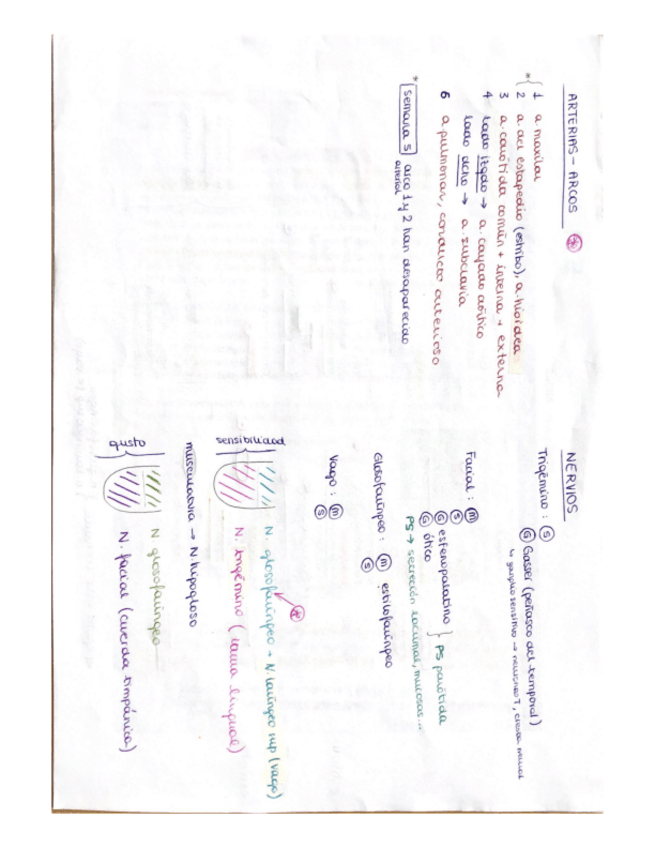 ARTERIAS - ARCOS
* 1 a. maxilar
2 a. del estapedio (estribo), a. hioidea
3 a. carótida común + interna + externa
4 lado izqdo → a. cayado aórtico
lado dcho → a. subclavia
6 a. pulmonar, conducto arterioso
* semana 5 arco 1 y 2 han desaparecido
arterial
NERVIOS
Trigémino: S
G Gasser (peñasco del temporal)
↳ ganglio sensitivo → neuronas T, cresta neural
Facial: M
S
G esfenopalatino
G ótico
PS parótida
PS → secreción lacrimal, mucosas...
Glosofaríngeo: M estilofaríngeo
S
Vago: M
S
sensibilidad
N. glosofaríngeo + N. laríngeo sup (vago)
N. trigémino (rama lingual)
musculatura → N. hipogloso
gusto
N. glosofaríngeo
N. facial (cuerda timpánica)